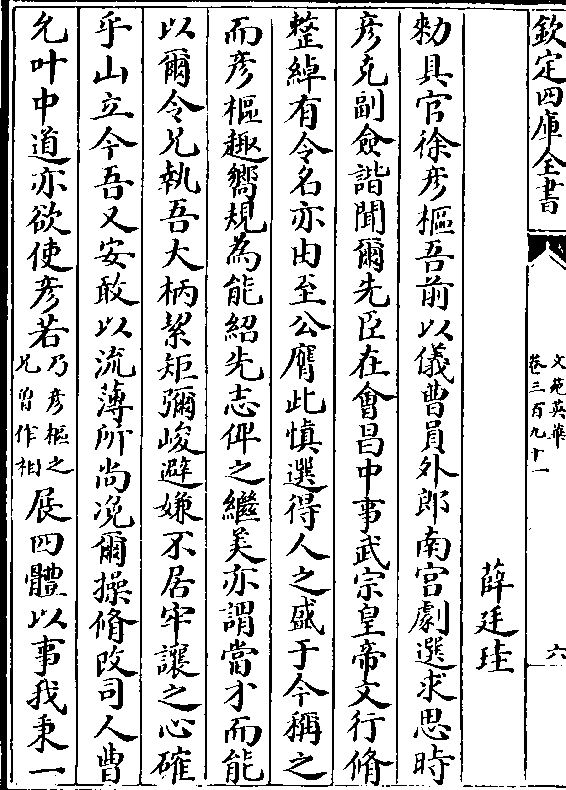 欽定四庫全書
文苑英華
卷三百九十一
六
薛廷珪
勑具官徐彦樞吾前以儀曹員外郎南宫劇選求思時
彦克副僉諧聞爾先臣在會昌中事武宗皇帝文行脩
整綽有令名亦由至公膺此慎選得人之盛于今稱之
而彦樞趣嚮規為能紹先志俾之繼美亦謂當才而能
以爾令兄執吾大柄絜矩彌峻避嫌不居牢讓之心確
乎山立今吾又安敢以流薄所尚凂爾操脩改司人曹
允叶中道亦欲使彦若乃彦樞之兄曽作相展四體以事我秉一